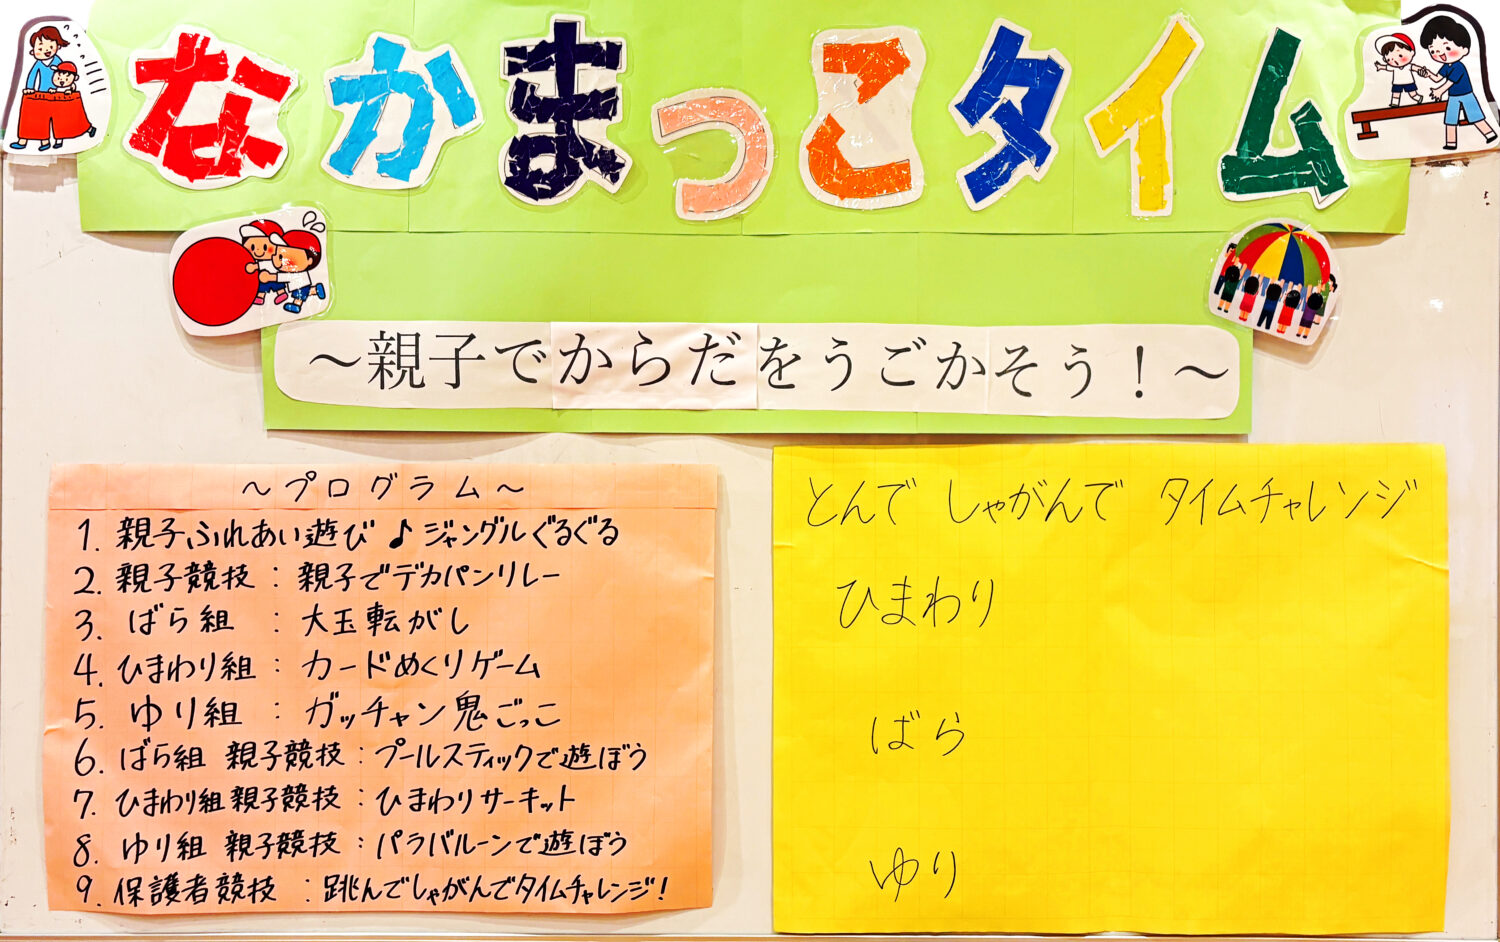 なかまっこタイム
～親子でからだをうごかそう！～
～プログラム～
1. 親子ふれあい遊び♪ジャングルぐるぐる
2. 親子競技：親子でデカパンリレー
3. ばら組：大玉転がし
4. ひまわり組：カードめくりゲーム
5. ゆり組：ガッチャン鬼ごっこ
6. ばら組 親子競技：プールスティックで遊ぼう
7. ひまわり組 親子競技：ひまわりサーキット
8. ゆり組 親子競技：パラバルーンで遊ぼう
9. 保護者競技：跳んでしゃがんでタイムチャレンジ！
とんで しゃがんで タイムチャレンジ
ひまわり
ばら
ゆり